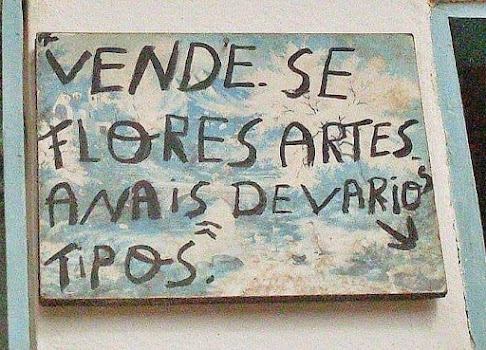 VENDE-SE
FLORES ARTES.
ANAIS DE VARIOS
TIPOS.